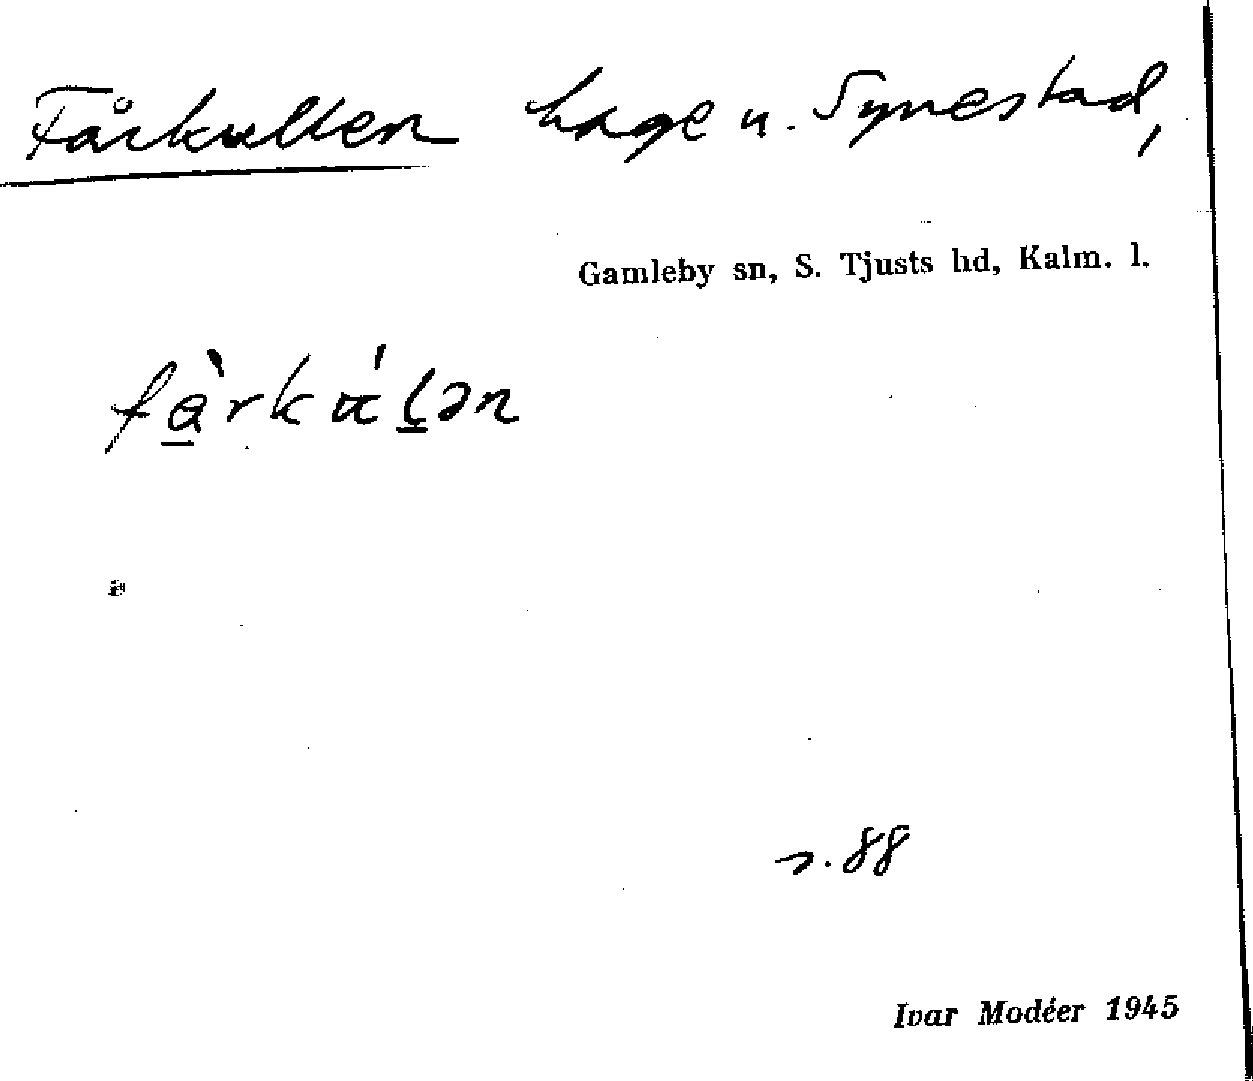 Fårkullen hage u. Synestad,
Gamleby sn, S. Tjusts hd, Kalm. l.
s. 88
Ivar Modéer 1945